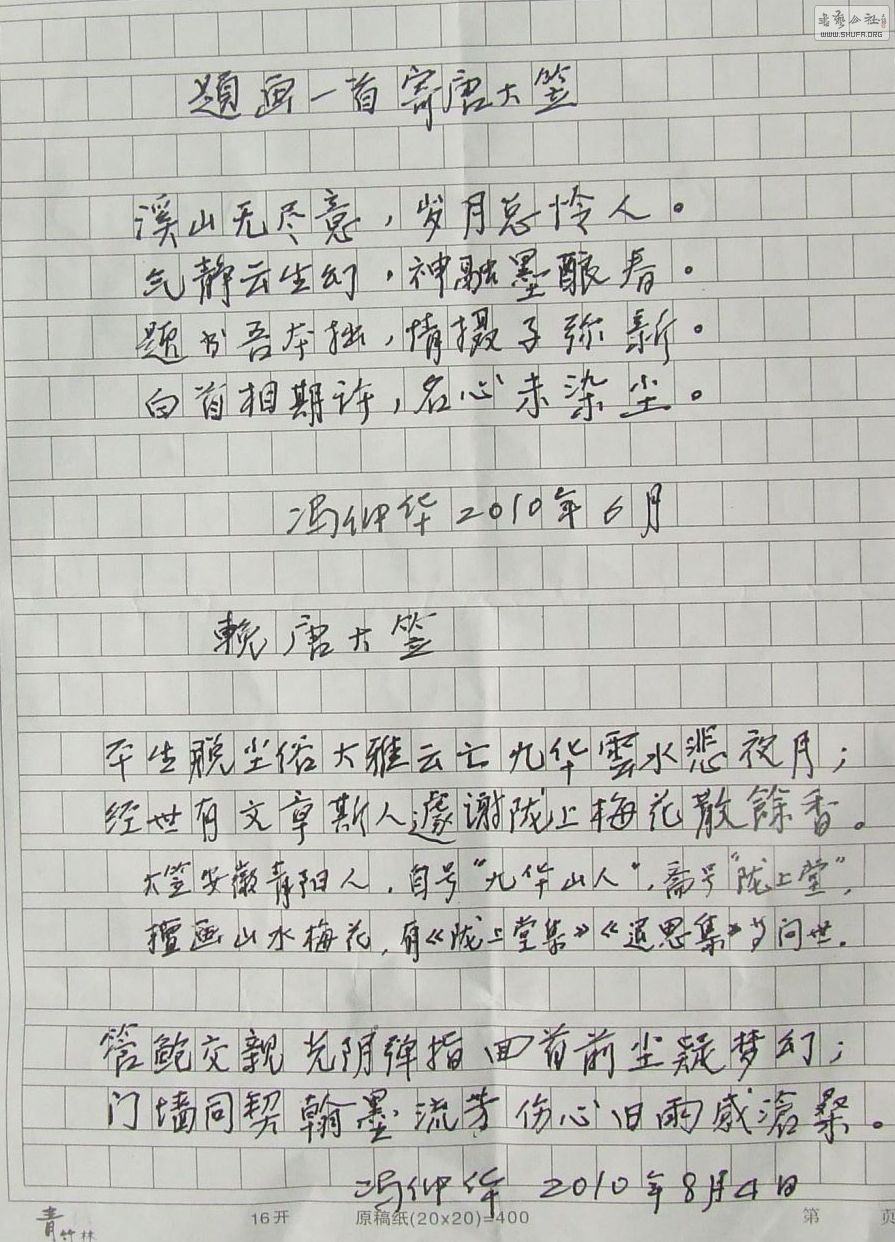 书艺公社
WWW.SHUFA.ORG
题画一首寄唐大笠
溪山无尽意，岁月总怜人。
气静云生幻，神融墨酿春。
题书吾本拙，情摄子弥新。
白首相期许，名心未染尘。
冯仲华 2010年6月
輓唐大笠
平生脱尘俗大雅云亡九华雲水悲夜月；
经世有文章斯人遽谢陇上梅花散餘香。
大笠安徽青阳人，自号“九华山人”，斋号“陇上堂”，
擅画山水梅花，有《陇上堂集》《追思集》等问世。
管鲍交亲光阴弹指回首前尘疑梦幻；
门墙同契翰墨流芳伤心旧雨感滄桑。
冯仲华 2010年8月4日
青竹林 16开 原稿纸(20×20)=400 第 页